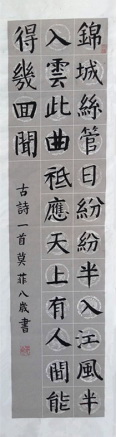 錦城絲管日紛紛半入江風半
入雲此曲祗應天上有人間能
得幾回聞
古詩一首莫菲八歲書